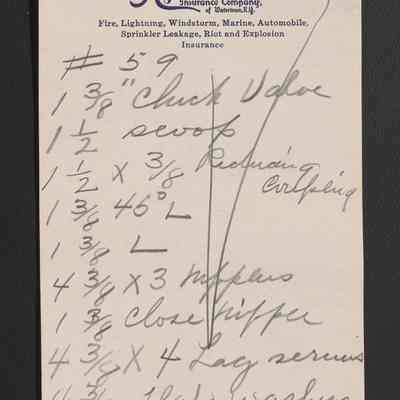 Insurance Company,
of Watertown, N.Y.
Fire, Lightning, Windstorm, Marine, Automobile,
Sprinkler Leakage, Riot and Explosion
Insurance
# 59
1 3/8" Check Valve
1 1/2 scoop
1 1/2 X 3/8 Reducing
Coupling
1 3/8 45° L
1 3/8 L
4 3/8 X 3 nipplers
1 3/8 Close Nipper
4 3/8 X 4 Lag screws